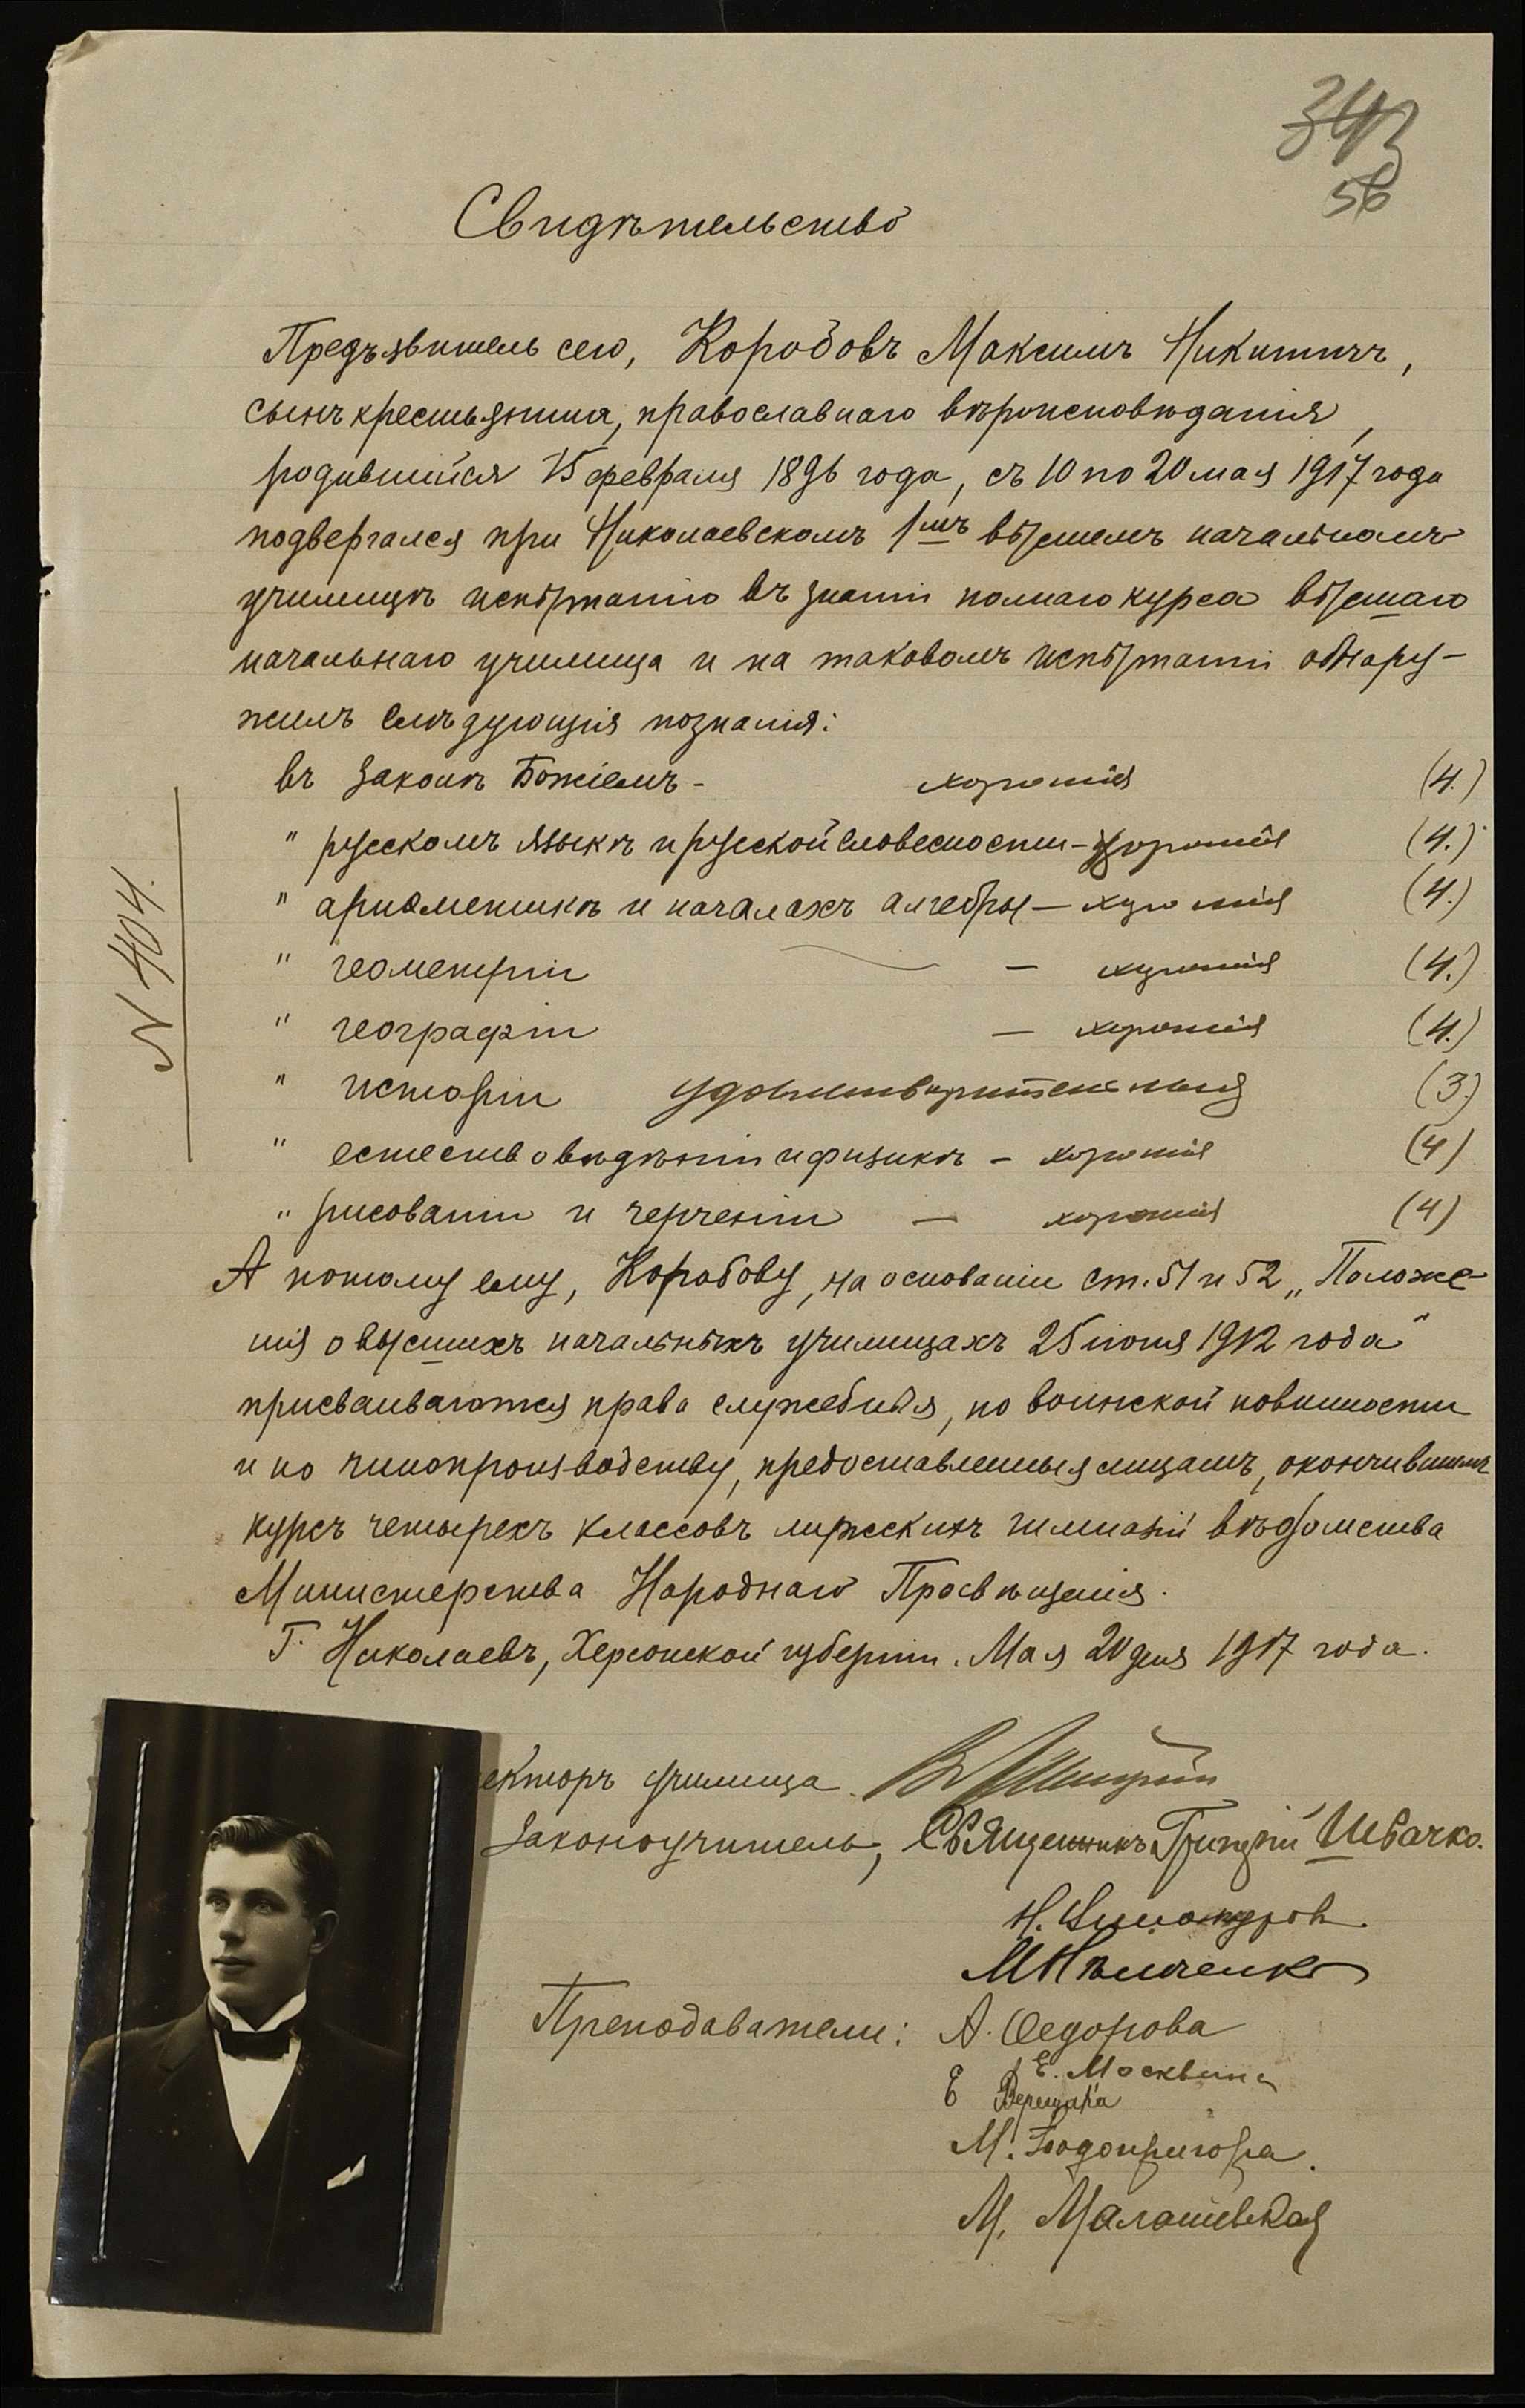 343
56
Свидѣтельство
Предъявитель сего, Коробовъ Максимъ Никитичъ,
сынъ крестьянина, православнаго вѣроисповѣданія,
родившійся 15 февраля 1896 года, съ 10 по 20 мая 1917 года
подвергался при Николаевскомъ 1мъ высшемъ начальномъ
училищѣ испытанію въ знаніи полнаго курса высшаго
начальнаго училища и на таковомъ испытаніи обнару-
жилъ слѣдующія познанія:
въ Законѣ Божіемъ - хорошія (4.)
" русскомъ языкѣ и русской словесности - хорошія (4.)
" ариѳметикѣ и началахъ алгебры - хорошія (4.)
" геометріи - хорошія (4.)
" географіи - хорошія (4.)
" исторіи удовлетворительныя (3.)
" естествовѣдѣніи и физикѣ - хорошія (4)
" рисованіи и черченіи - хорошія (4)
N 404.
А потому ему, Коробову, на основаніи ст. 51 и 52 „Положе-
нія о высшихъ начальныхъ училищахъ 25 іюня 1912 года"
присваиваются права служебныя, по воинской повинности
и по чинопроизводству, предоставленныя лицамъ, окончившимъ
курсъ четырехъ классовъ мужскихъ гимназій вѣдомства
Министерства Народнаго Просвѣщенія.
Г. Николаевъ, Херсонской губерніи. Мая 20 дня 1917 года.
екторъ училища
Законоучитель, Священникъ Григорій Швачко.
Н. Винокуров.
М Нѣмченко
Преподаватели: А. Ѳедорова
Е. Москвина
Е Верещака
М. Подопригора.
М. Малашевская